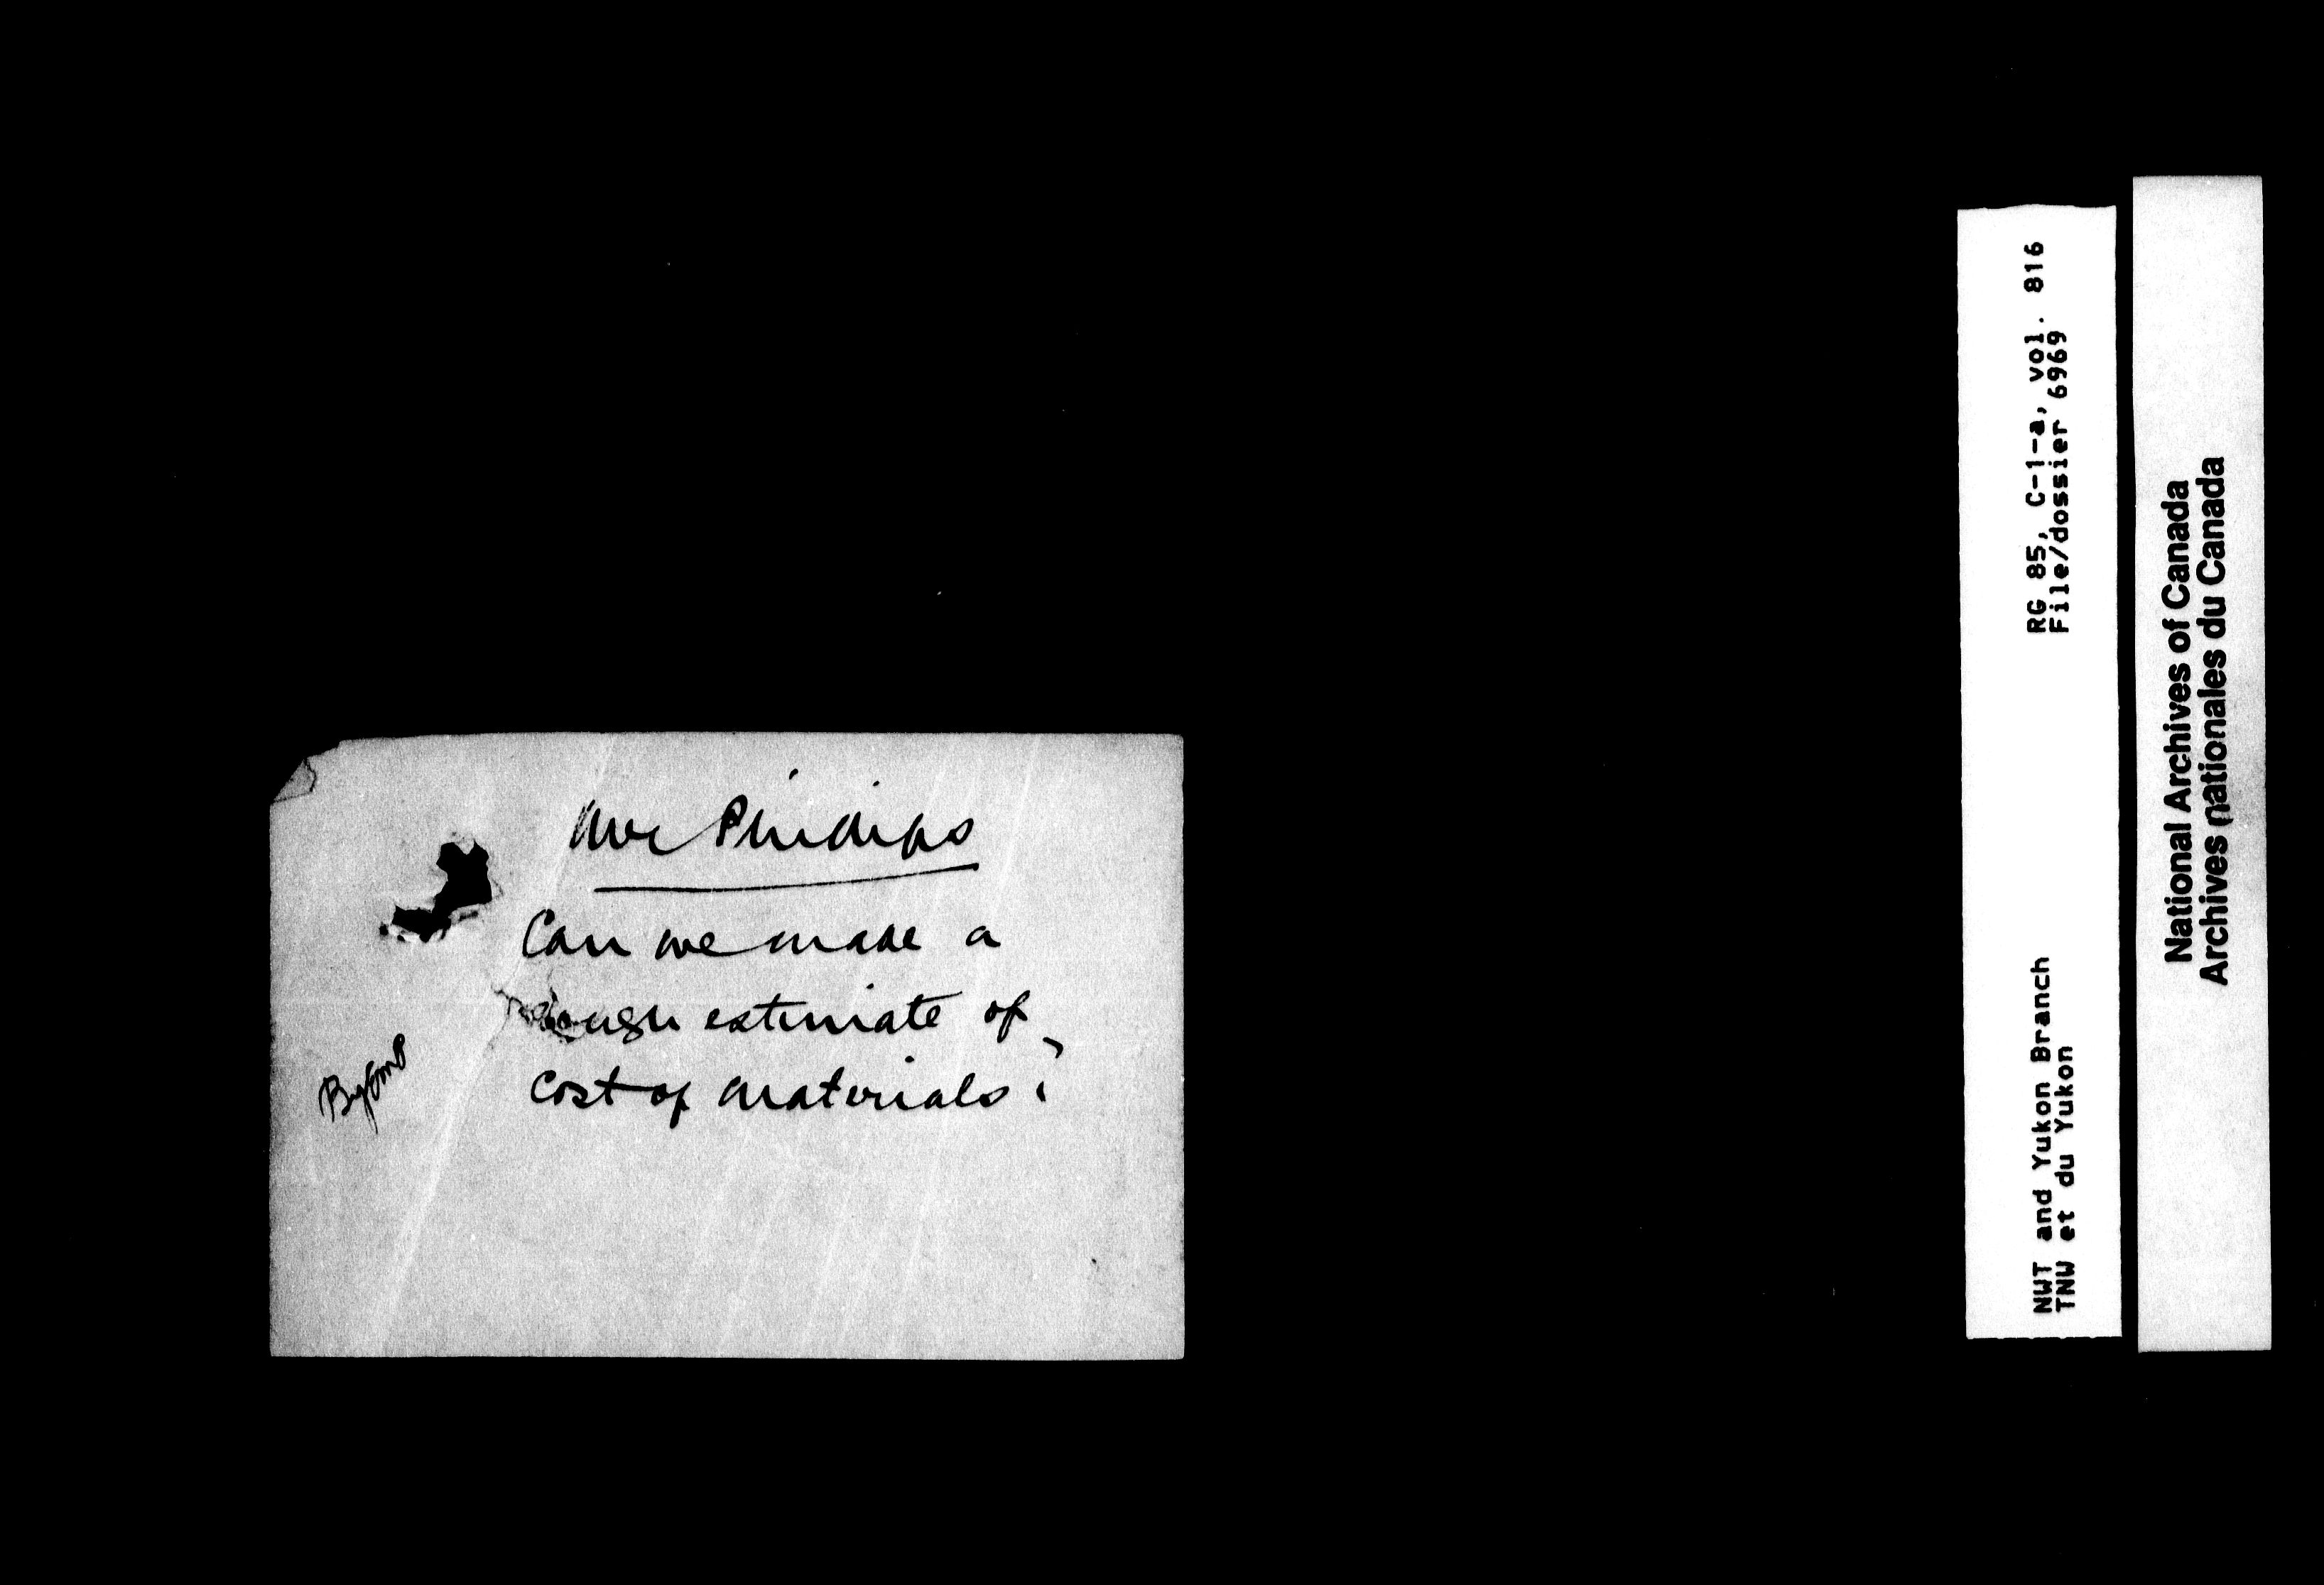 Mr Phillips
Can we make a
rough estimate of
cost of materials?
RG 85, C-1-a, vol. 816
File/dossier 6969
NWT and Yukon Branch
TNW et du Yukon
National Archives of Canada
Archives nationales du Canada